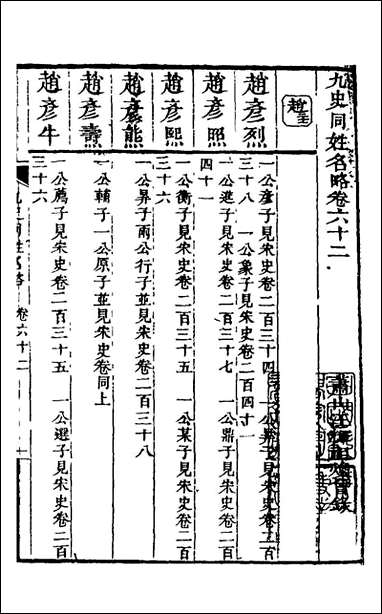 九史同姓名略卷六十二
蕭山汪輝祖煥曾錄
趙
趙彦烈
一公彦子見宋史卷二百三十四 一公昇子見宋史卷二百
三十八 一公象子見宋史卷二百四十一
趙彦照
一公進子見宋史卷二百三十七 一公鼎子見宋史卷二百
四十一
趙彦熙
一公衡子見宋史卷二百三十五 一公某子見宋史卷二百
三十六
趙彦熊
一公昇子兩公行子並見宋史卷二百三十八
趙彦壽
一公輔子一公原子並見宋史卷同上
趙彦牛
一公膺子見宋史卷二百三十五 一公選子見宋史卷二百
三十六
九史同姓名略 卷六十二 一